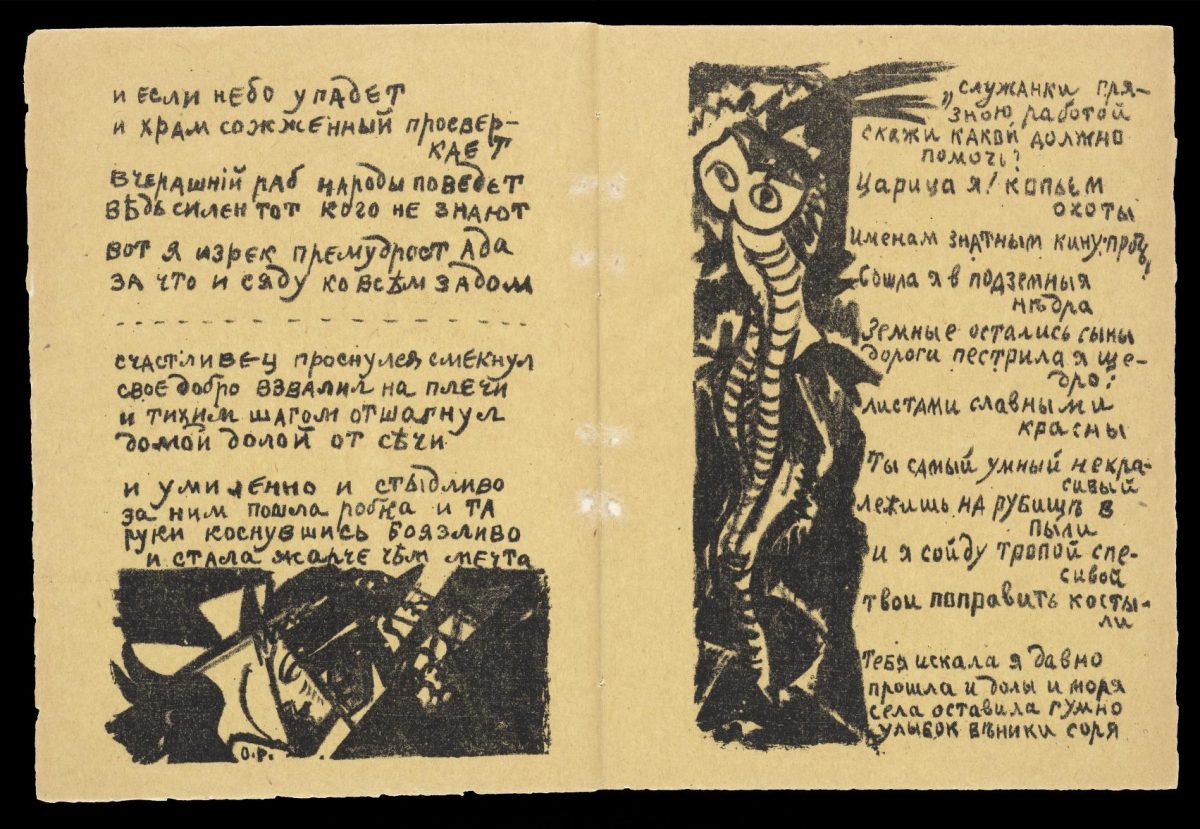 и если небо упадет
и храм сожженный просвер-
кает
вчерашнiй раб народы поведет
вѣдь силен тот кого не знают
вот я изрек премудрост ада
за что и сяду ко всѣм задом
счастливец проснулся смекнул
свое добро взвалил на плечи
и тихим шагом отшагнул
домой долой от сѣчи
и умиленно и стыдливо
за ним пошла робка и та
руки коснувшись боязливо
и стала жарче чѣм мечта
О.Р.
„служанки гря-
зною работой
скажи какой должно
помочь?
Царица я! копьем
охоты
именам знатным кину: прочь
Сошла я в подземныя
нѣдра
Земные остались сыны
дороги пестрила я ще-
дро:
листами славными
красны
Ты самый умный некра-
сивый
лежишь на рубищѣ в
пыли
и я сойду тропой спе-
сивой
твои поправить косты-
ли
Тебя искала я давно
прошла и долы и моря
села оставила гумно
улыбок вѣники соря